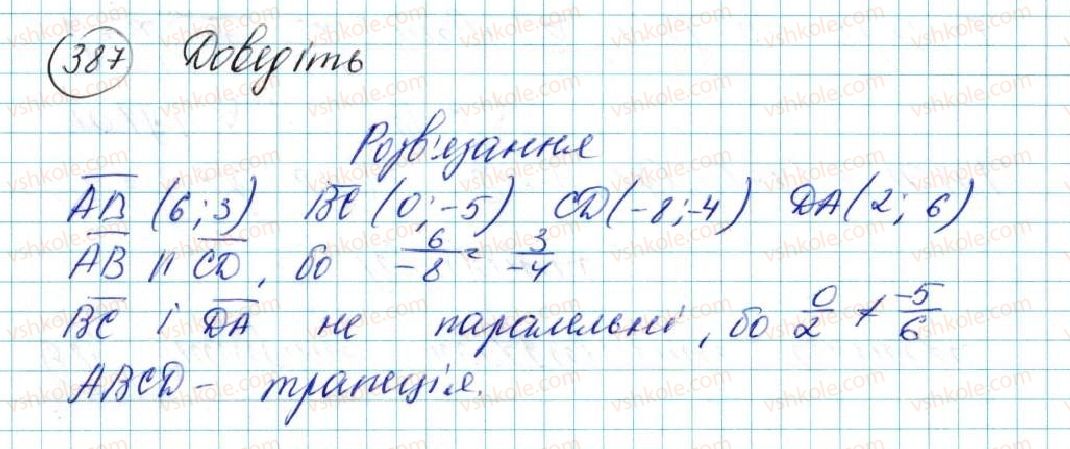 387 Доведіть
Розв'язання
AB (6; 3) BC (0; -5) CD (-8; -4) DA (2; 6)
AB || CD, бо 6/-8 = 3/-4
BC і DA не паралельні, бо 0/2 ≠ -5/6
ABCD - трапеція.